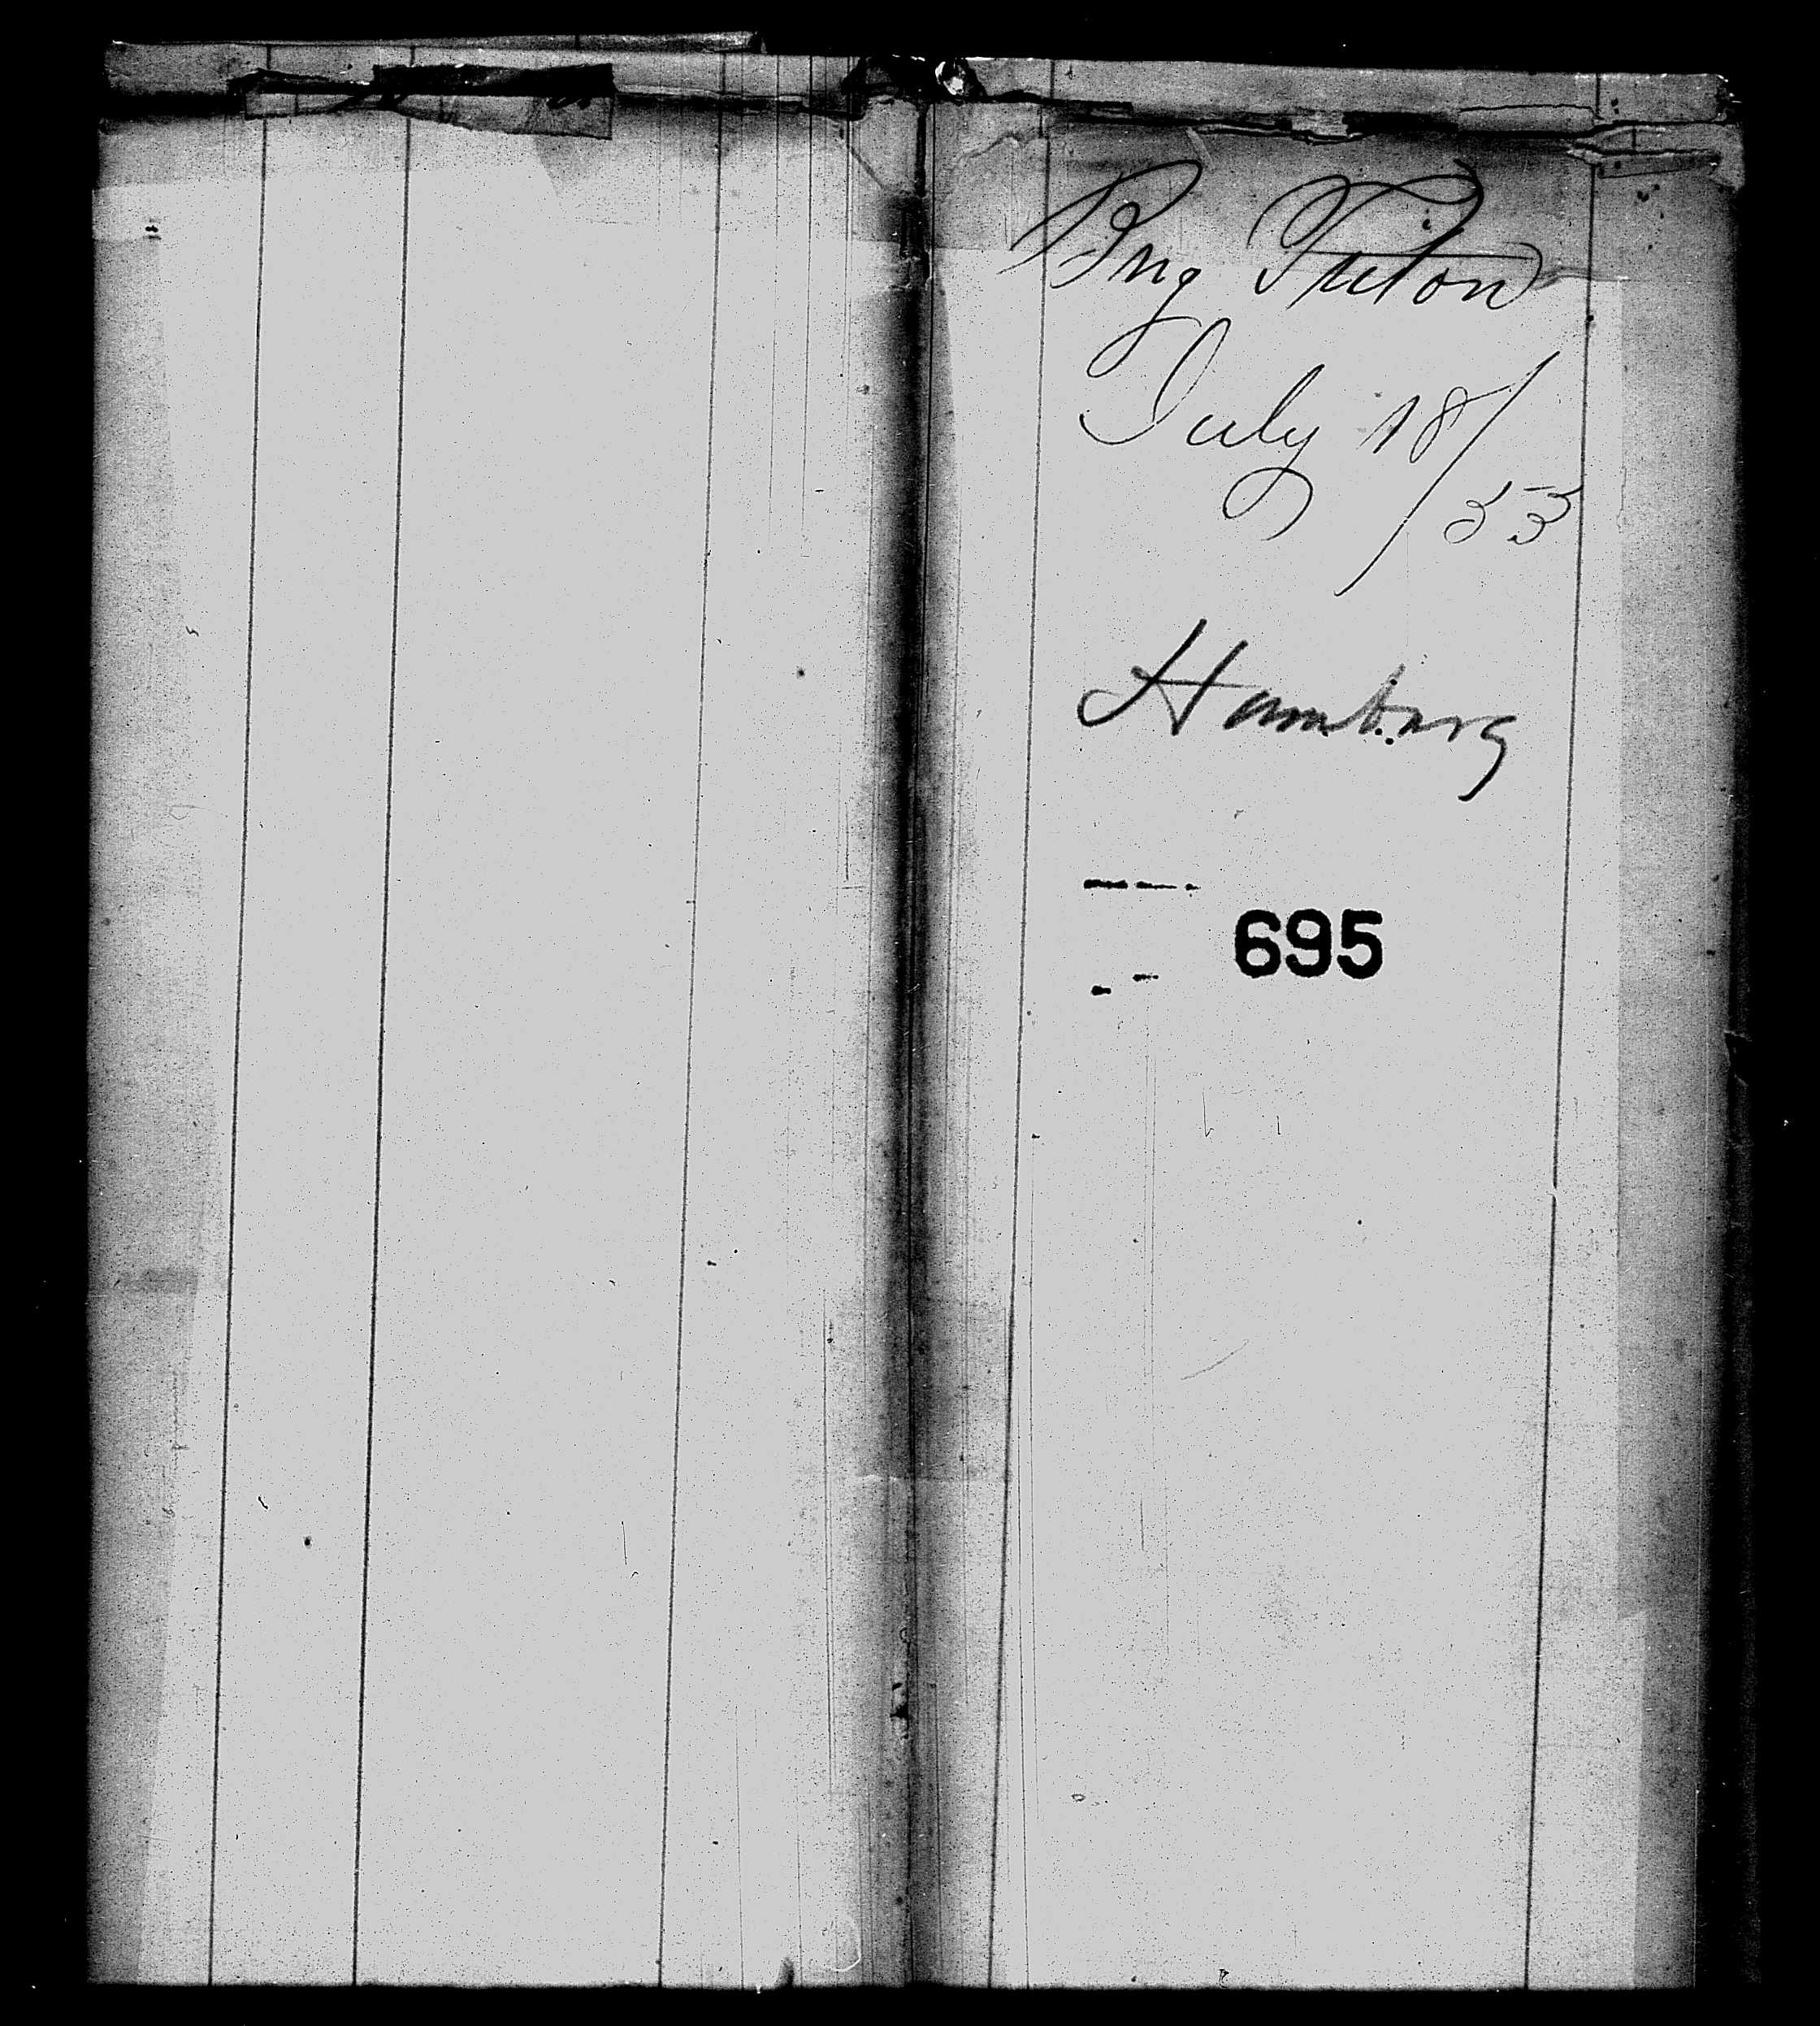 Brig Triton
July 18/53
Hamburg
695